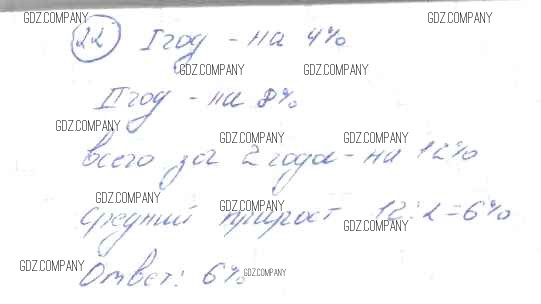 GDZ.COMPANY GDZ.COMPANY
22 I год - на 4%
GDZ.COMPANY GDZ.COMPANY
II год - на 8%
GDZ.COMPANY GDZ.COMPANY
всего за 2 года - на 12%
GDZ.COMPANY GDZ.COMPANY
средний прирост 12:2=6%
GDZ.COMPANY GDZ.COMPANY
Ответ: 6%